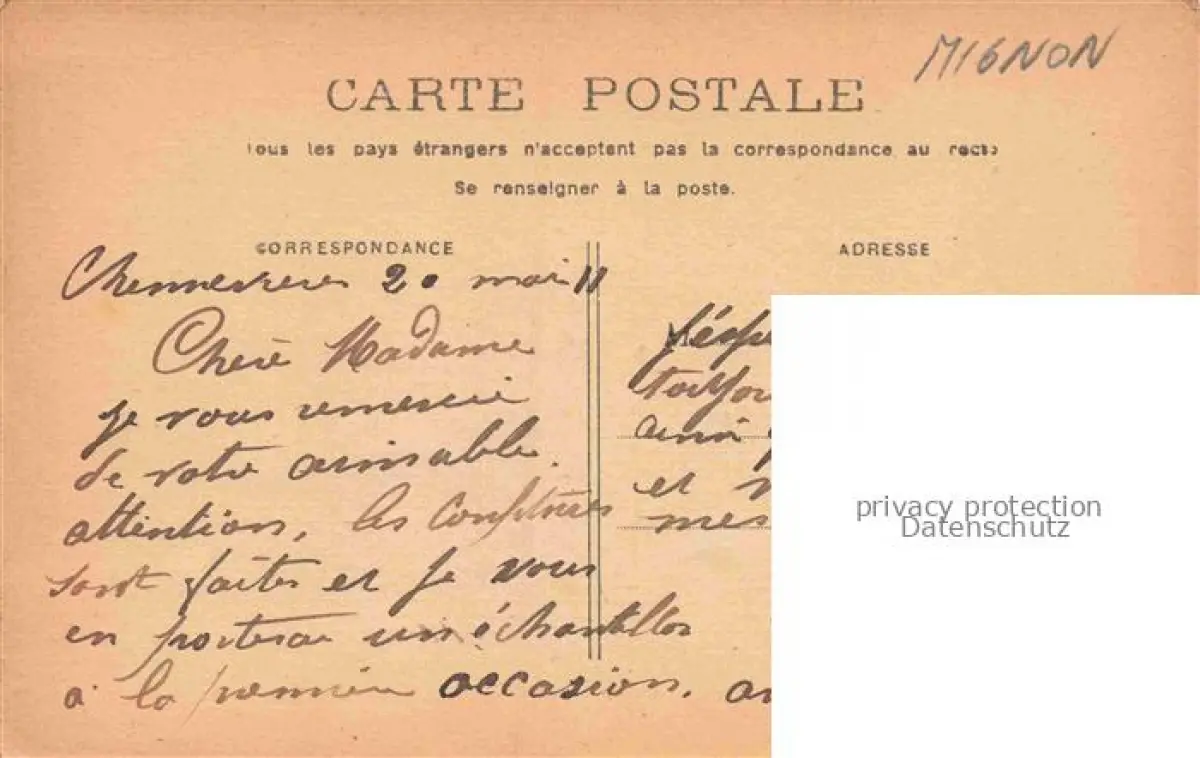 MIGNON
CARTE POSTALE
Tous les pays étrangers n'acceptent pas la correspondance au recto
Se renseigner à la poste.
CORRESPONDANCE
ADRESSE
20 mai 11
Chère Madame
je vous remercie
de votre aimable
attention, les confitures
sont faites et je vous
en porterai un échantillon
à la première occasion.
et
mes
privacy protection
Datenschutz